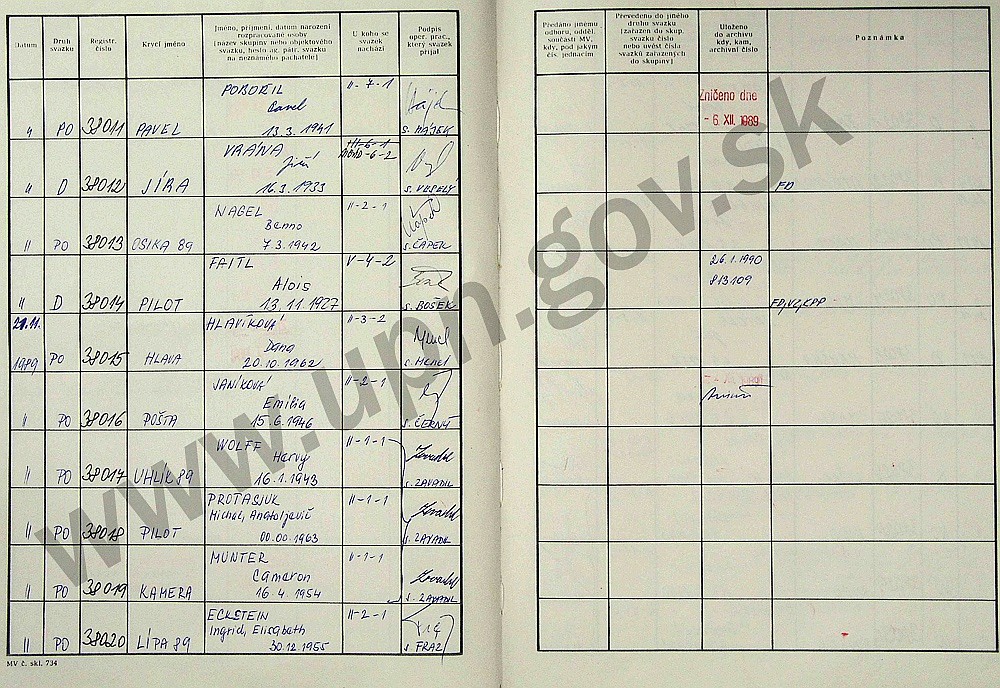 Datum
Druh svazku
Registr. číslo
Krycí jméno
Jméno, příjmení, datum narození
rozpracované osoby
(název skupiny nebo objektového
svazku, heslo ag. pátr. svazku
na neznámého pachatele)
U koho se
svazek
nachází
Podpis
oper. prac.,
který svazek
přijal
Předáno jinému
odboru, odděl.
součásti MV,
kdy, pod jakým
čís. jednacím
Převedeno do jiného
druhu svazku
(zařazen do skup.
svazku číslo
nebo uvést čísla
svazků zařazených
do skupiny)
Uloženo
do archivu
kdy, kam,
archivní číslo
Poznámka
POBOŘIL II-7-1
Pavel
" PO 38011 PAVEL 13.3.1941 s. HÁJEK
Zničeno dne
- 6. XII. 1989
VRÁNA II-6-1
Jiří
" D 38012 JÍRA 16.3.1933 s. VESELÝ
FD
NAGEL II-2-1
Benno
" PO 38013 OSIKA 89 7.3.1942 s. ČAPEK
FAITL V-4-2
Alois
" D 38014 PILOT 13.11.1927 s. BOŠEK
26.1.1990
813109
FD,VZ,KPP
21.11. HLAVÍKOVÁ II-3-2
Dana
1989 PO 38015 HLAVA 20.10.1962
JANÍKOVÁ II-2-1
Emília
" PO 38016 POŠTA 15.6.1946 s. ČERNÝ
WOLFF II-1-1
Harvy
" PO 38017 UHLÍK 89 16.1.1943 s. ZAVADIL
PROTASJUK II-1-1
Michal, Anatoljevič
" PO 38018 PILOT 00.00.1963 s. ZAVADIL
MUNTER II-1-1
Cameron
" PO 38019 KAMERA 16.4.1954 s. ZAVADIL
ECKSTEIN II-2-1
Ingrid, Elisabeth
" PO 38020 LÍPA 89 30.12.1955 s. FRAZ
MV č. skl. 734
www.upn.gov.sk